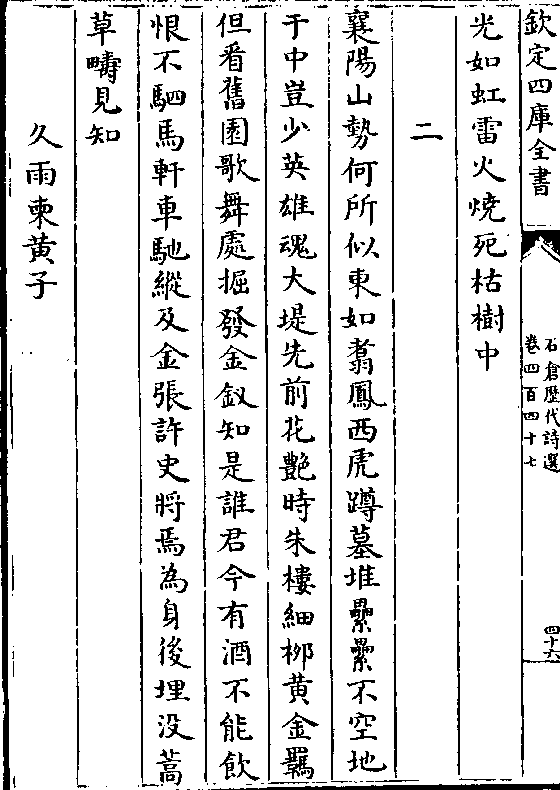 欽定四庫全書
石倉歷代詩選
卷四百四十七
四十六
光如虹雷火燒死枯樹中
二
襄陽山勢何所似東如翥鳳西虎蹲墓堆纍纍不空地
于中豈少英雄魂大堤先前花艷時朱樓細栁黄金羈
但看舊園歌舞處掘發金釵知是誰君今有酒不能飲
恨不駟馬軒車馳縱及金張許史將焉為身後埋没蒿
草疇見知
久雨柬黄子